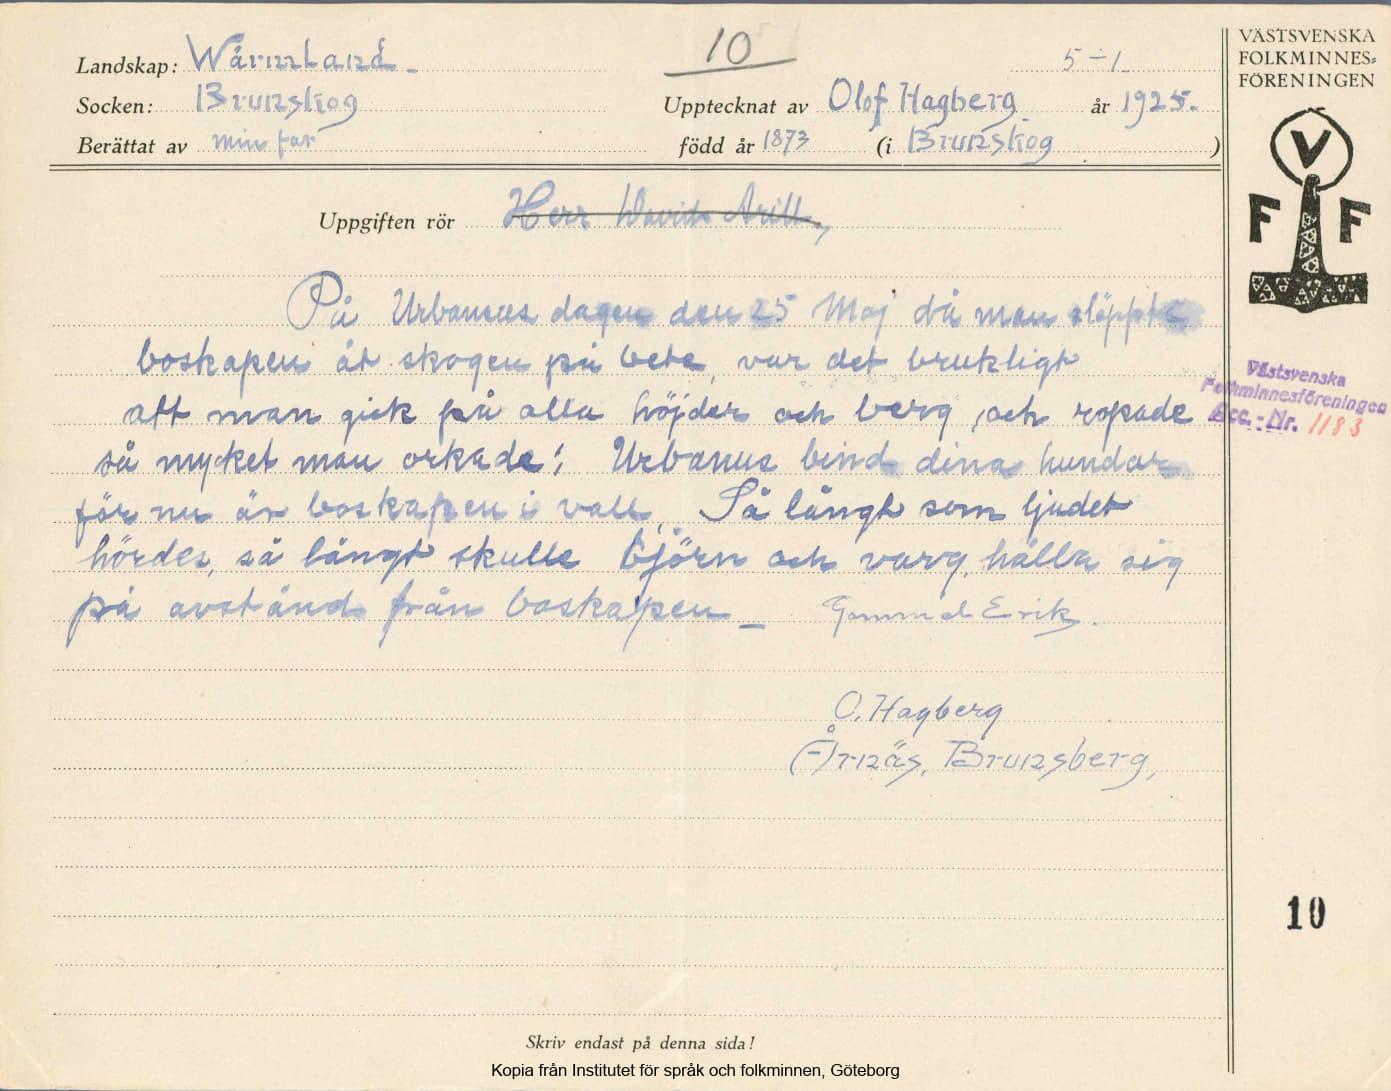 10
5-1
VÄSTSVENSKA
FOLKMINNES=
FÖRENINGEN
V
F F
Landskap: Wärmland
Socken: Brunskog
Upptecknat av Olof Hagberg år 1925.
Berättat av min far
född år 1873 (i Brunskog )
Uppgiften rör Herr David Arill,
På Urbanus dagen den 25 Maj då man släppte
boskapen åt skogen på bete, var det brukligt
att man gick på alla höjder och berg, och ropade
så mycket man orkade! Urbanus bind dina hundar
för nu är boskapen i vall. Så långt som ljudet
hördes, så långt skulle björn och varg, hålla sig
på avstånd från boskapen _ Erik.
O. Hagberg
Årnäs, Brunsberg,
Västsvenska
Folkminnesföreningen
Acc.-Nr. 1183
10
Skriv endast på denna sida!
Kopia från Institutet för språk och folkminnen, Göteborg